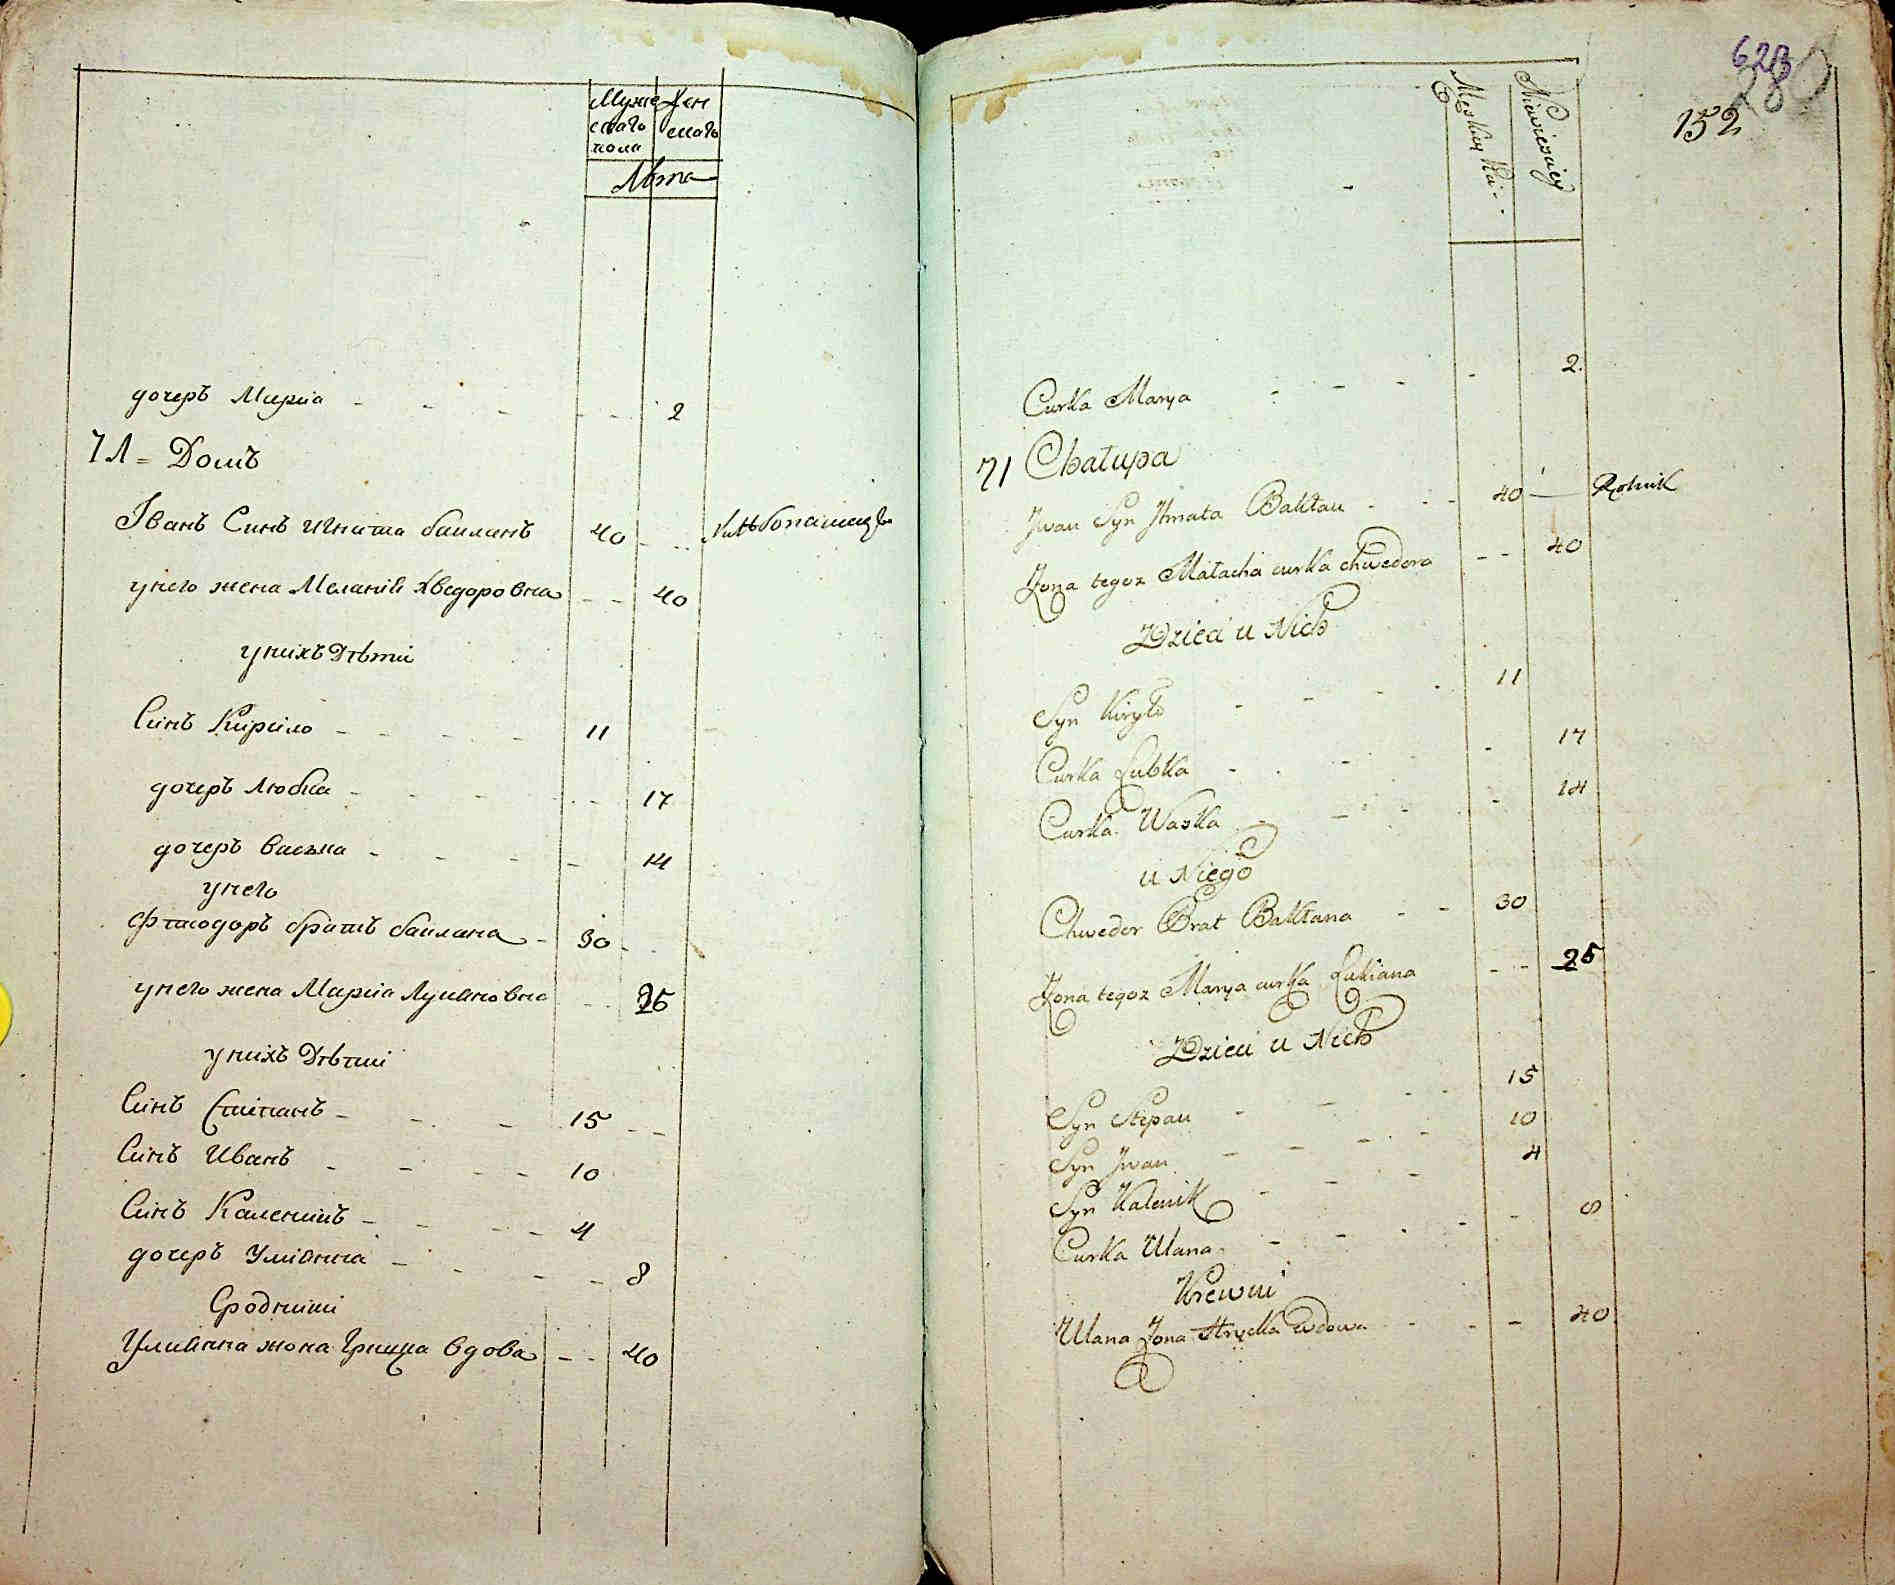 Муже
скаго
пола
Жен
скаго
Лѣта
дочеръ Марiа 2
71 = Домъ
Іванъ Синъ Игната бакланъ 40 Хлѣбопашецъ
унего жена Меланiя Хведоровна 40
унихъ Дѣти
Синъ Кирило 11
дочеръ Любка 17
дочеръ васька 14
унего
Фтіодоръ братъ баклана 30
унего жена Марiа Лукяновна 25
унихъ Дѣти
Синъ Стіпанъ 15
Синъ Иванъ 10
Синъ Каленикъ 4
дочеръ Улiянна 8
Сродники
Улиянна жона Грицка вдова 40
623
280
152
Męskiey Płci
Niewiesciey
Curka Marya 2.
71 Chałupa
Jwan Syn Jhnata Bakłan 40 Rolnik
Żona tegoz Małacha curka chwedora 40
Dzieci u Nich
Syn Kiryło 11
Curka Lubka 17
Curka Waska 14
u Niego
Chwedor Brat Bakłana 30
Żona tegoz Marya curka Łukiana 25
Dzieci u Nich
Syn Stepan 15
Syn Jwan 10
Syn Kalenik 4
Curka Ulana 8
Krewni
Ulana Żona Hrycka wdowa 40